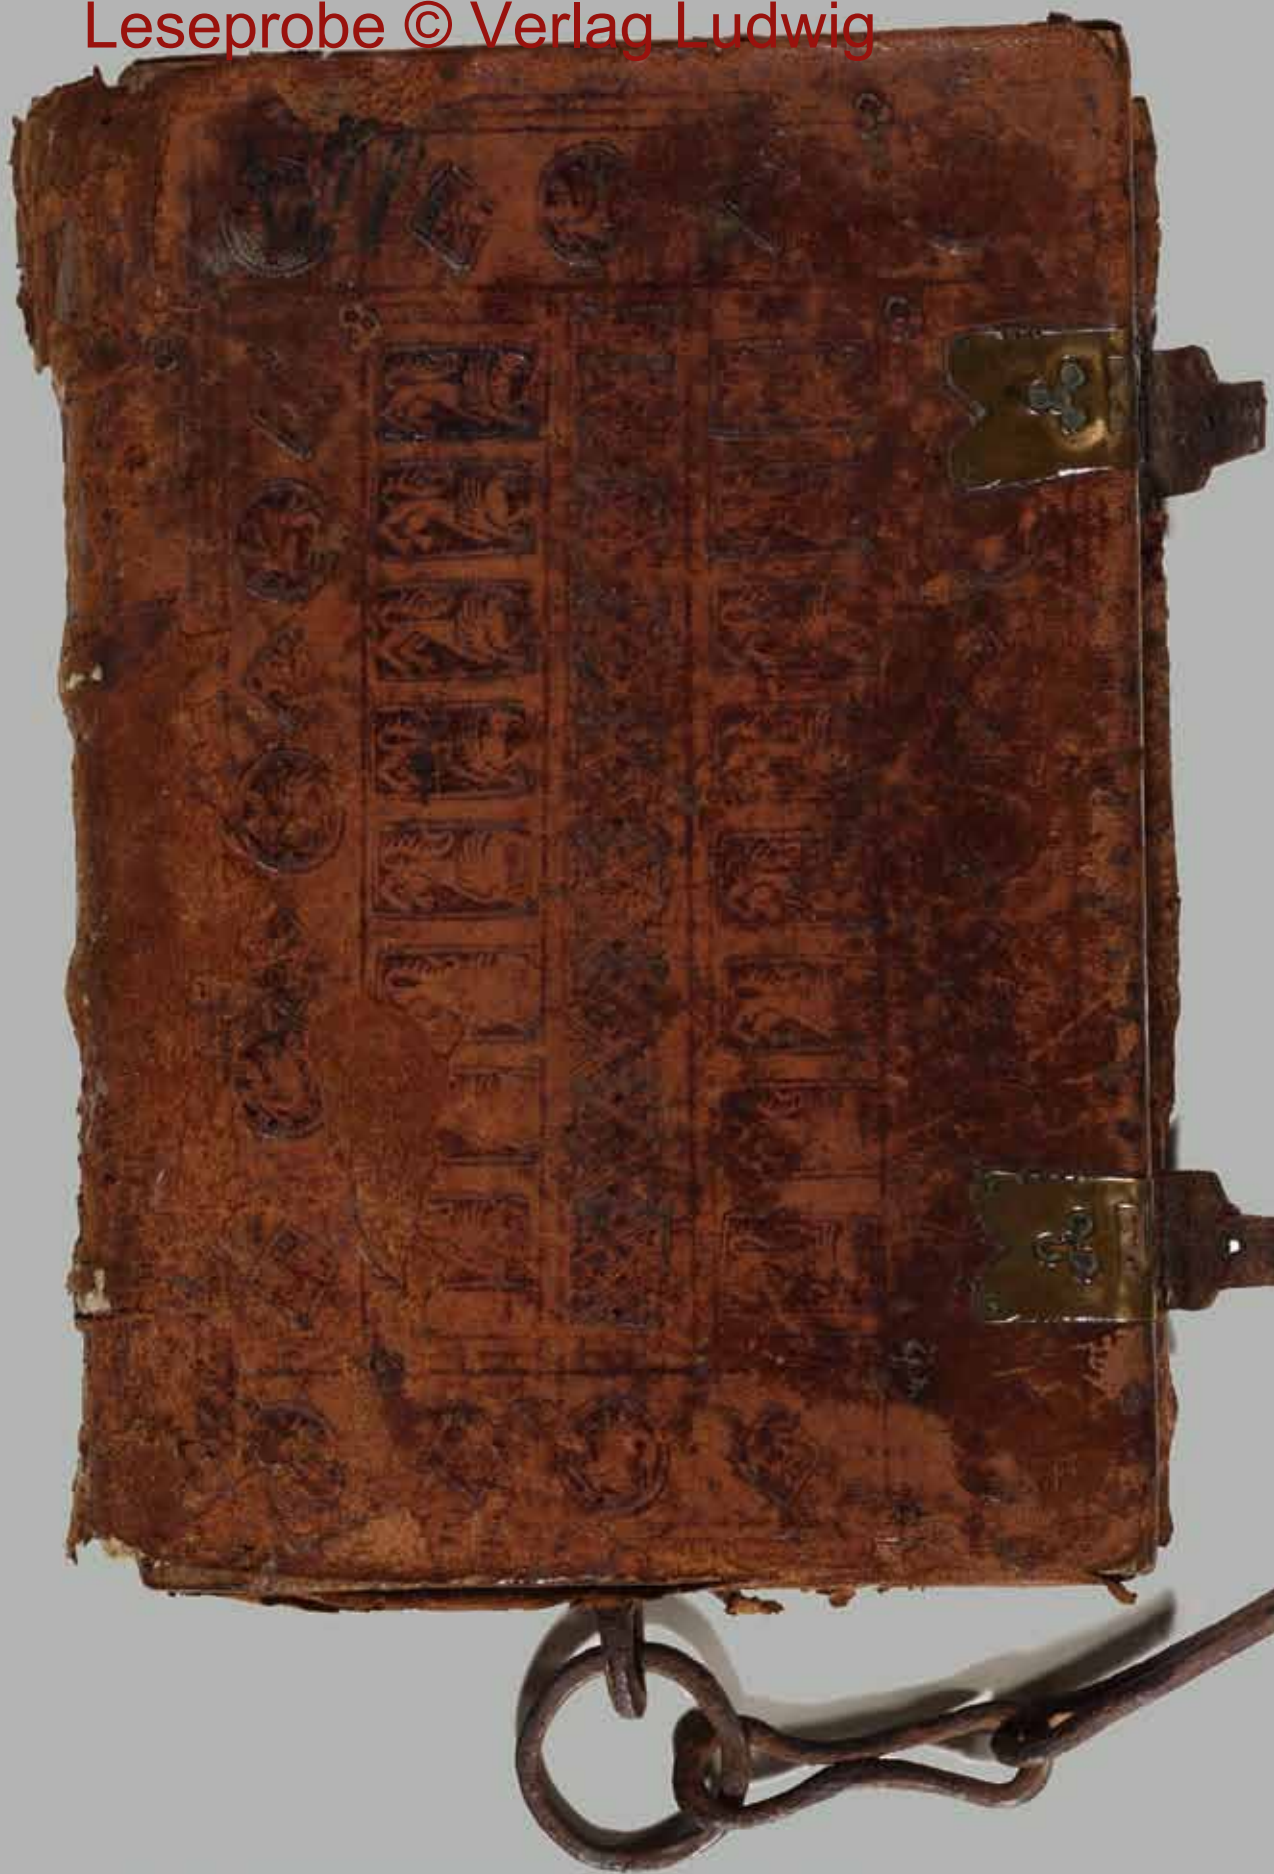 Leseprobe © Verlag Ludwig